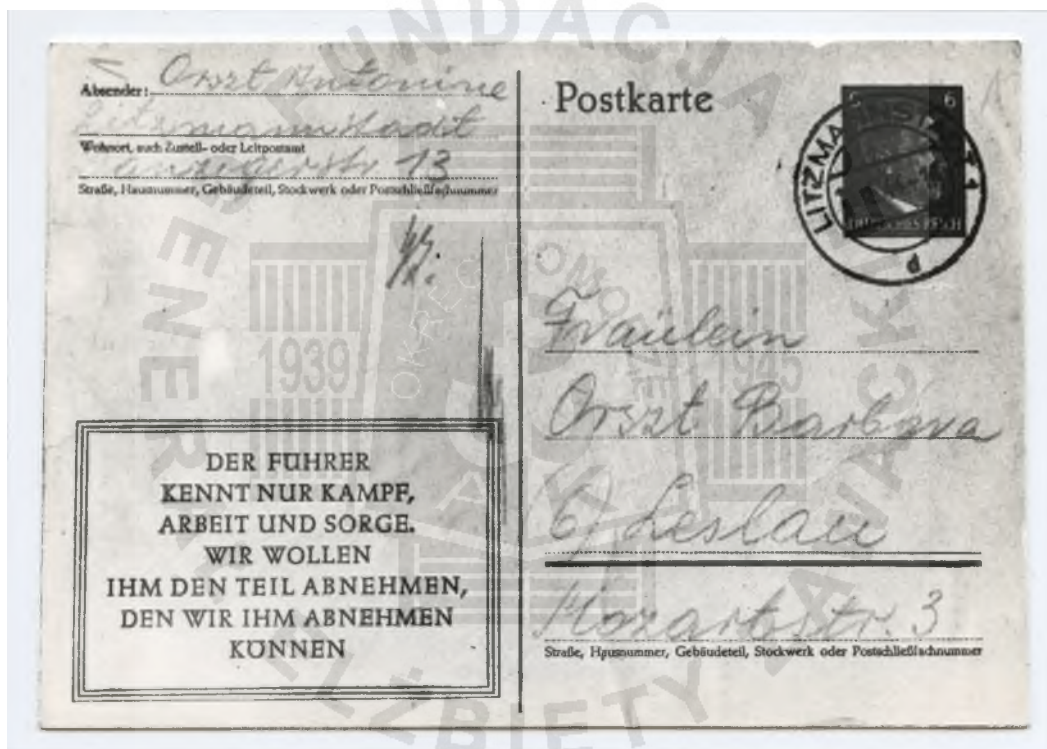 Absender: Orszt Antonine
Litzmannstadt
Wohnort, auch Zustell- oder Leitpostamt
13
Straße, Hausnummer, Gebäudeteil, Stockwerk oder Postschließfachnummer
DER FÜHRER
KENNT NUR KAMPF,
ARBEIT UND SORGE.
WIR WOLLEN
IHM DEN TEIL ABNEHMEN,
DEN WIR IHM ABNEHMEN
KÖNNEN
Postkarte
6 6
LITZMANNSTADT 1
DEUTSCHES REICH
d
Fräulein
Orszt Barbara
Leslau
Mozartstr. 3
Straße, Hausnummer, Gebäudeteil, Stockwerk oder Postschließfachnummer
FUNDACJA
GENERAŁ
ELŻBIETY ZAWACKIEJ
1939
1945
OKRĘG POMORZE
AK